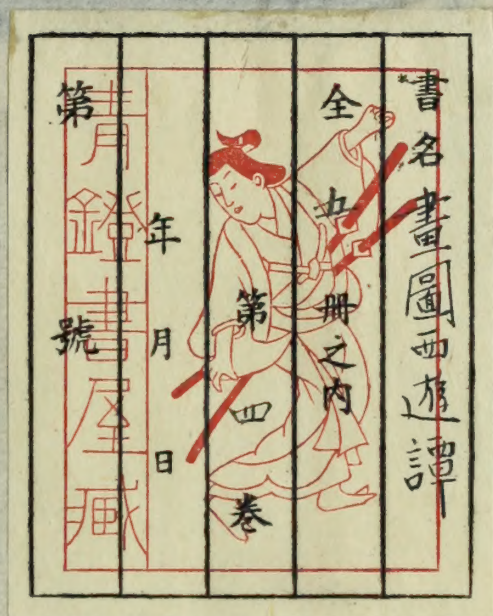 書名畫圖西遊譚
全五冊之内
第四卷
年月日
第號
青鐙書屋臧